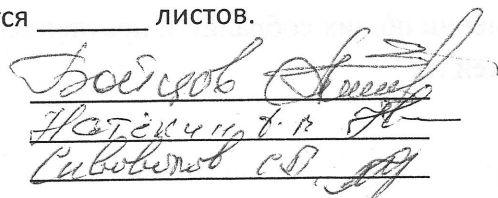 тся ________ листов.
Бойцов
Натёкин
Сивоволов С.П.